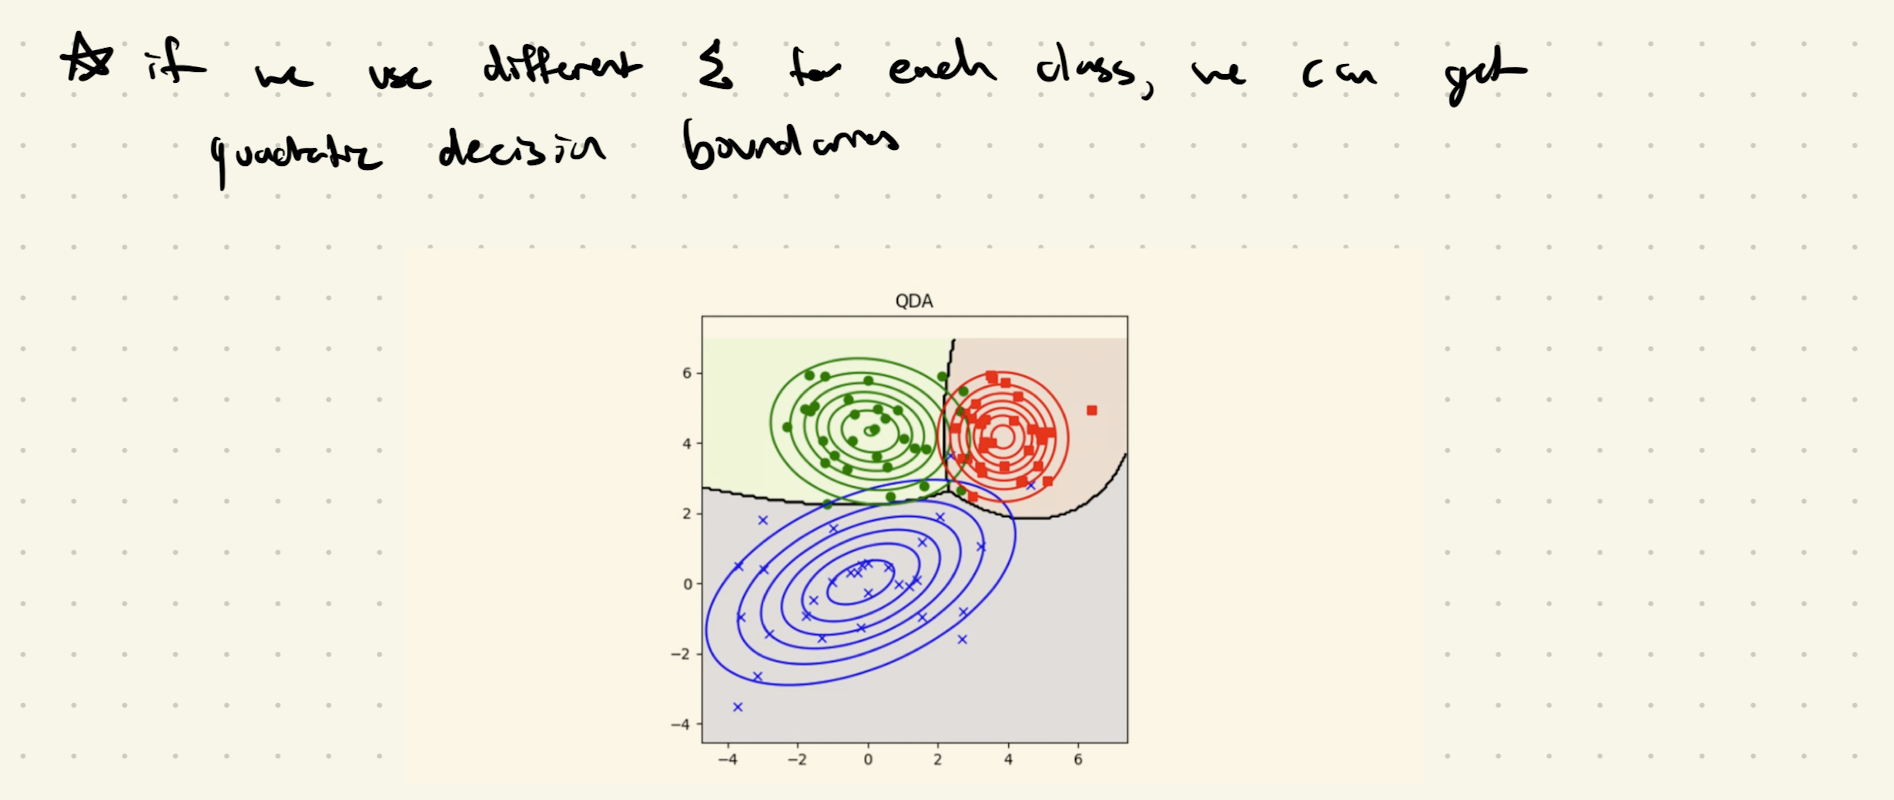 ☆ if we use different Σ for each class, we can get
quadratic decision boundaries
QDA
6
4
2
0
−2
−4
−4 −2 0 2 4 6